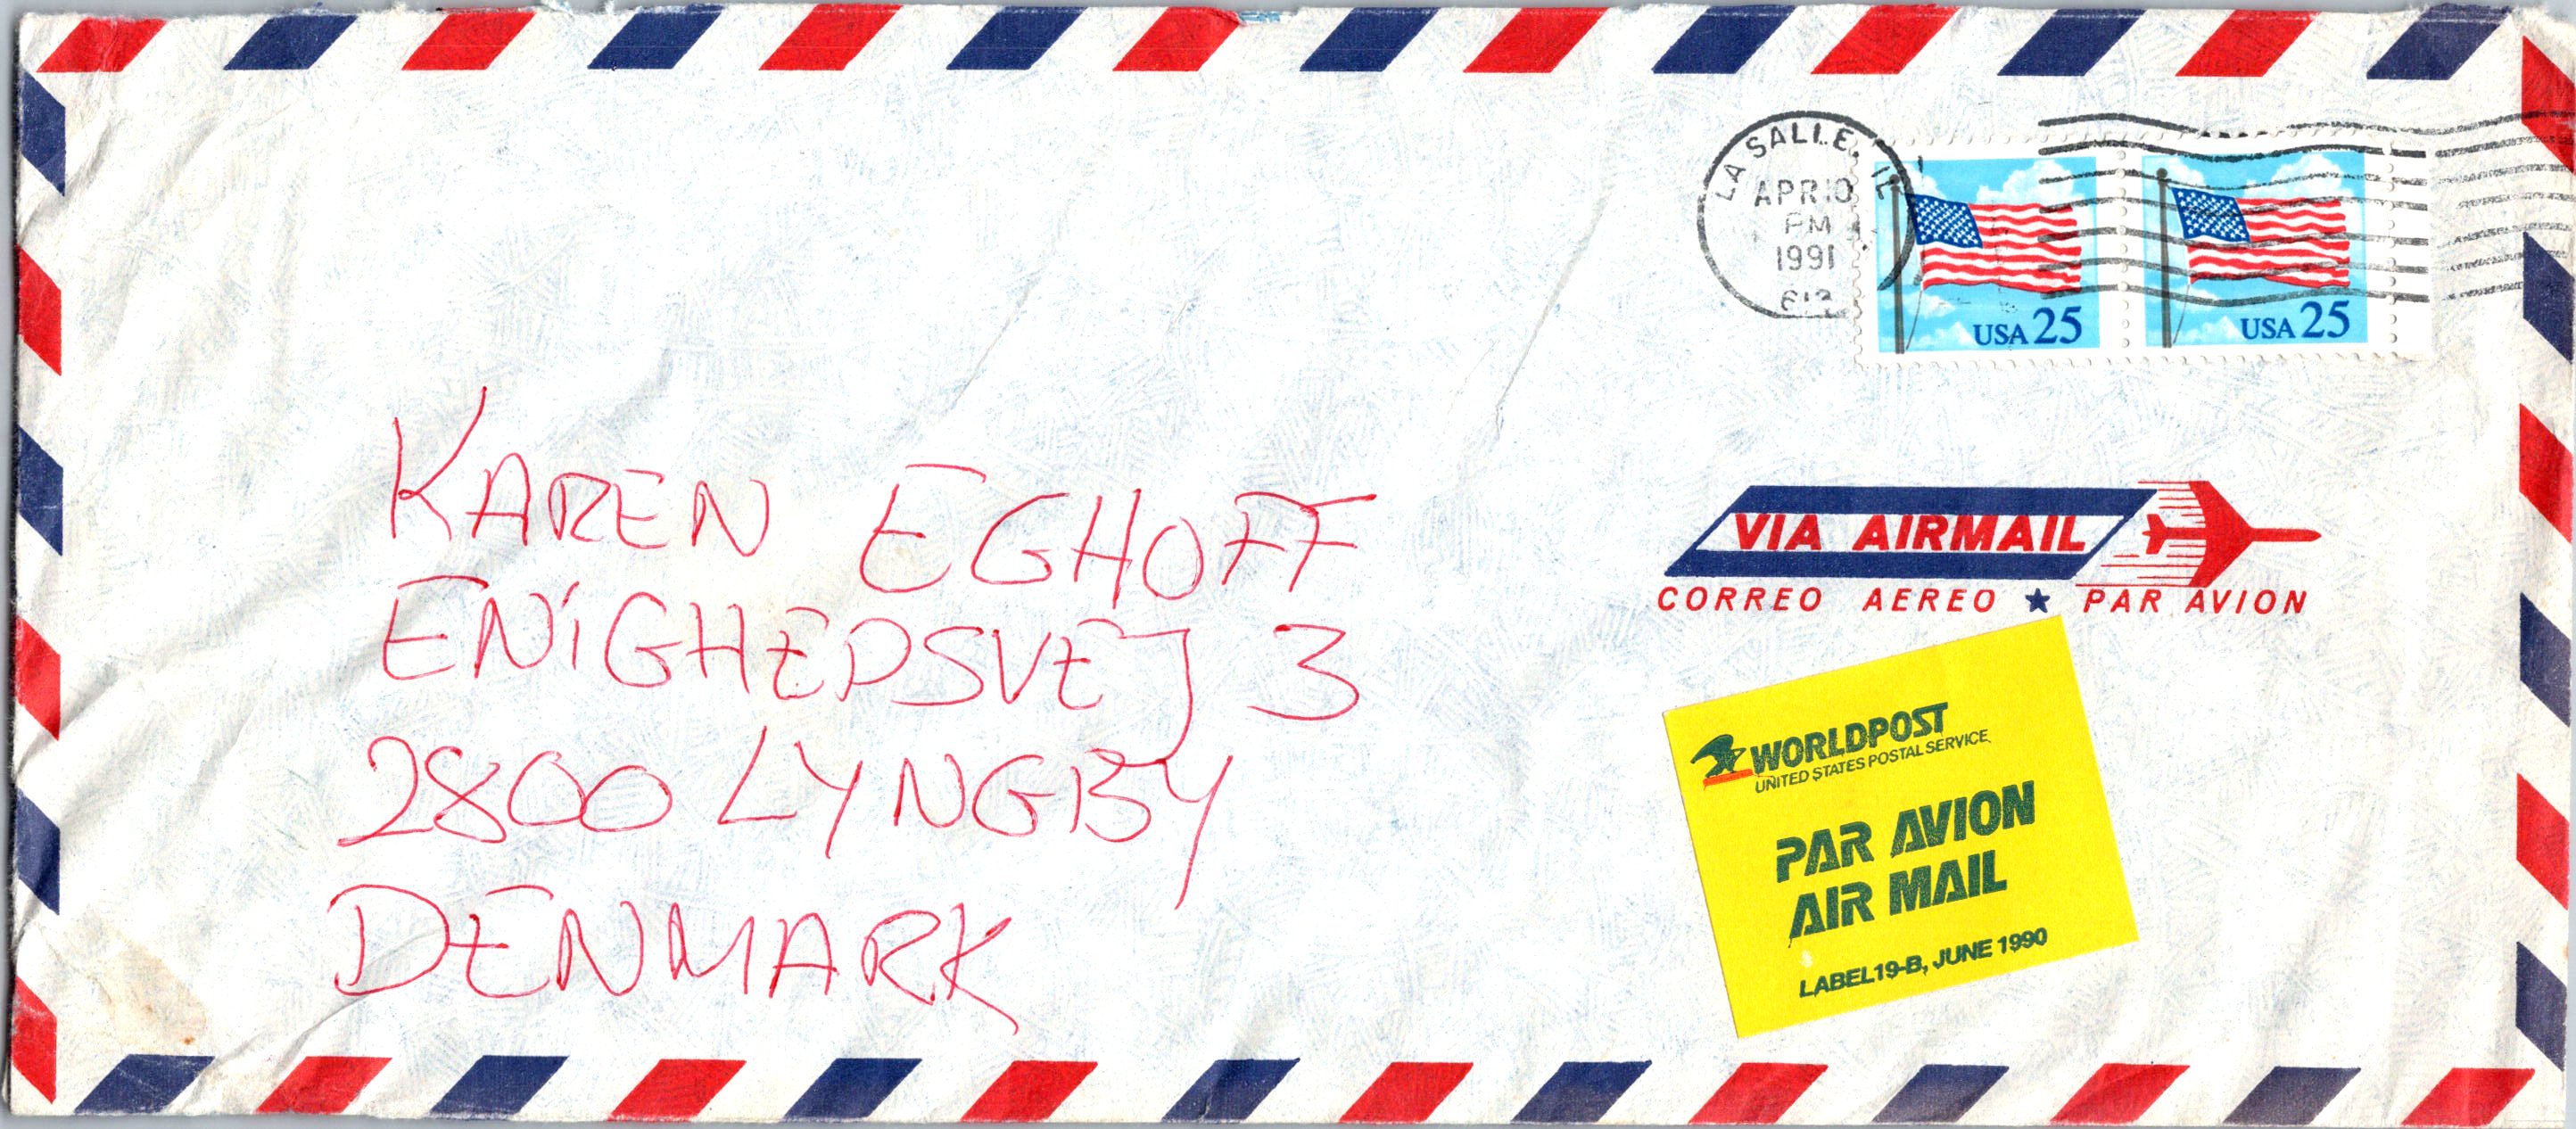 LA SALLE, IL
APR 10
PM
1991
613
USA 25
USA 25
KAREN EGHOFF
ENIGHEDSVEJ 3
2800 LYNGBY
DENMARK
VIA AIRMAIL
CORREO AEREO ★ PAR AVION
WORLDPOST
UNITED STATES POSTAL SERVICE
PAR AVION
AIR MAIL
LABEL 19-B, JUNE 1990